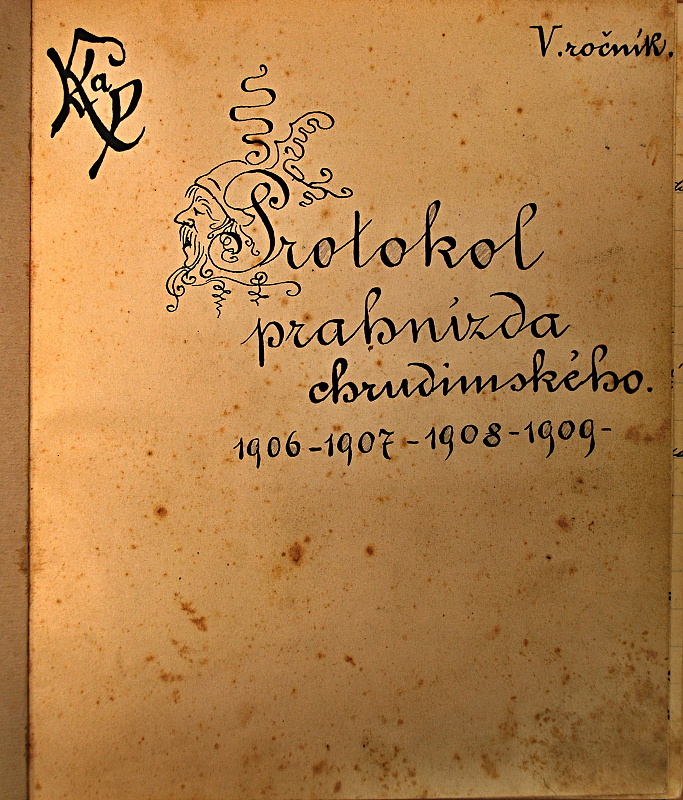 V. ročník.
Protokol
prahnízda
chrudimského.
1906-1907-1908-1909-